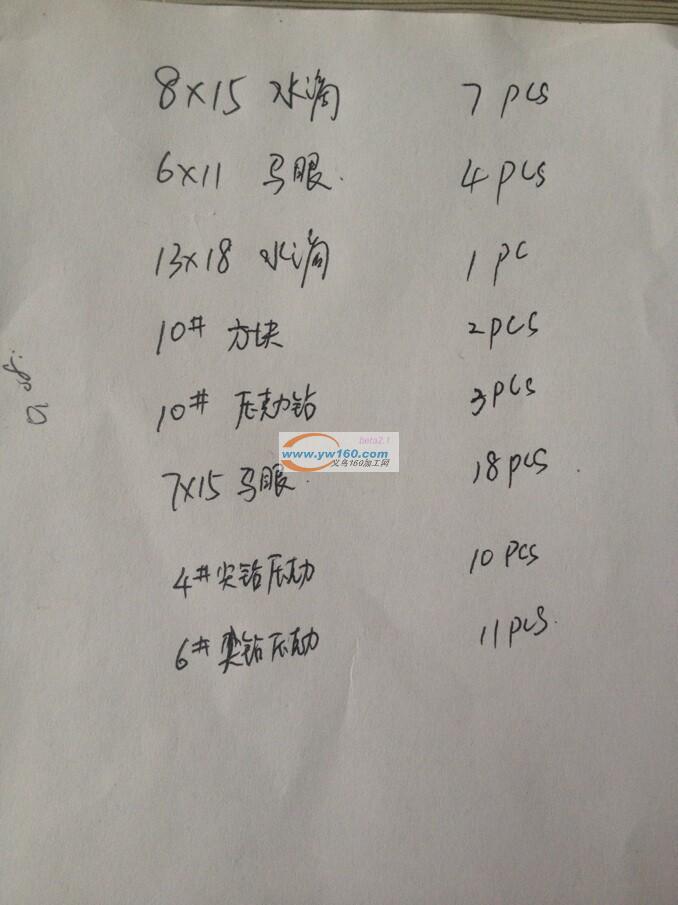 8×15 水滴 7 pcs
6×11 马眼. 4 pcs
13×18 水滴 1 pc
10# 方块 2pcs
10# 压克力钻 3pcs
beta2.1
www.yw160.com
义乌160加工网
7×15 马眼. 18 pcs.
4#尖钻压克力 10 pcs
6#尖钻压克力 11 pcs.